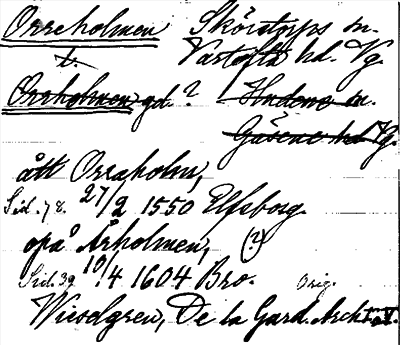 Orreholmen Skörstorps sn.
t. Vartofta hd. Vg.
Orrholmen gd? Hudene sn.
Gäsene hd Vg.
ått Orraholm,
Sid. 78. 27/2 1550 Elfsborg.
opå Årholmen, (?)
Sid. 39 10/4 1604 Bro. Orig.
Wieselgren, De la Gard. Arch. I o. V.